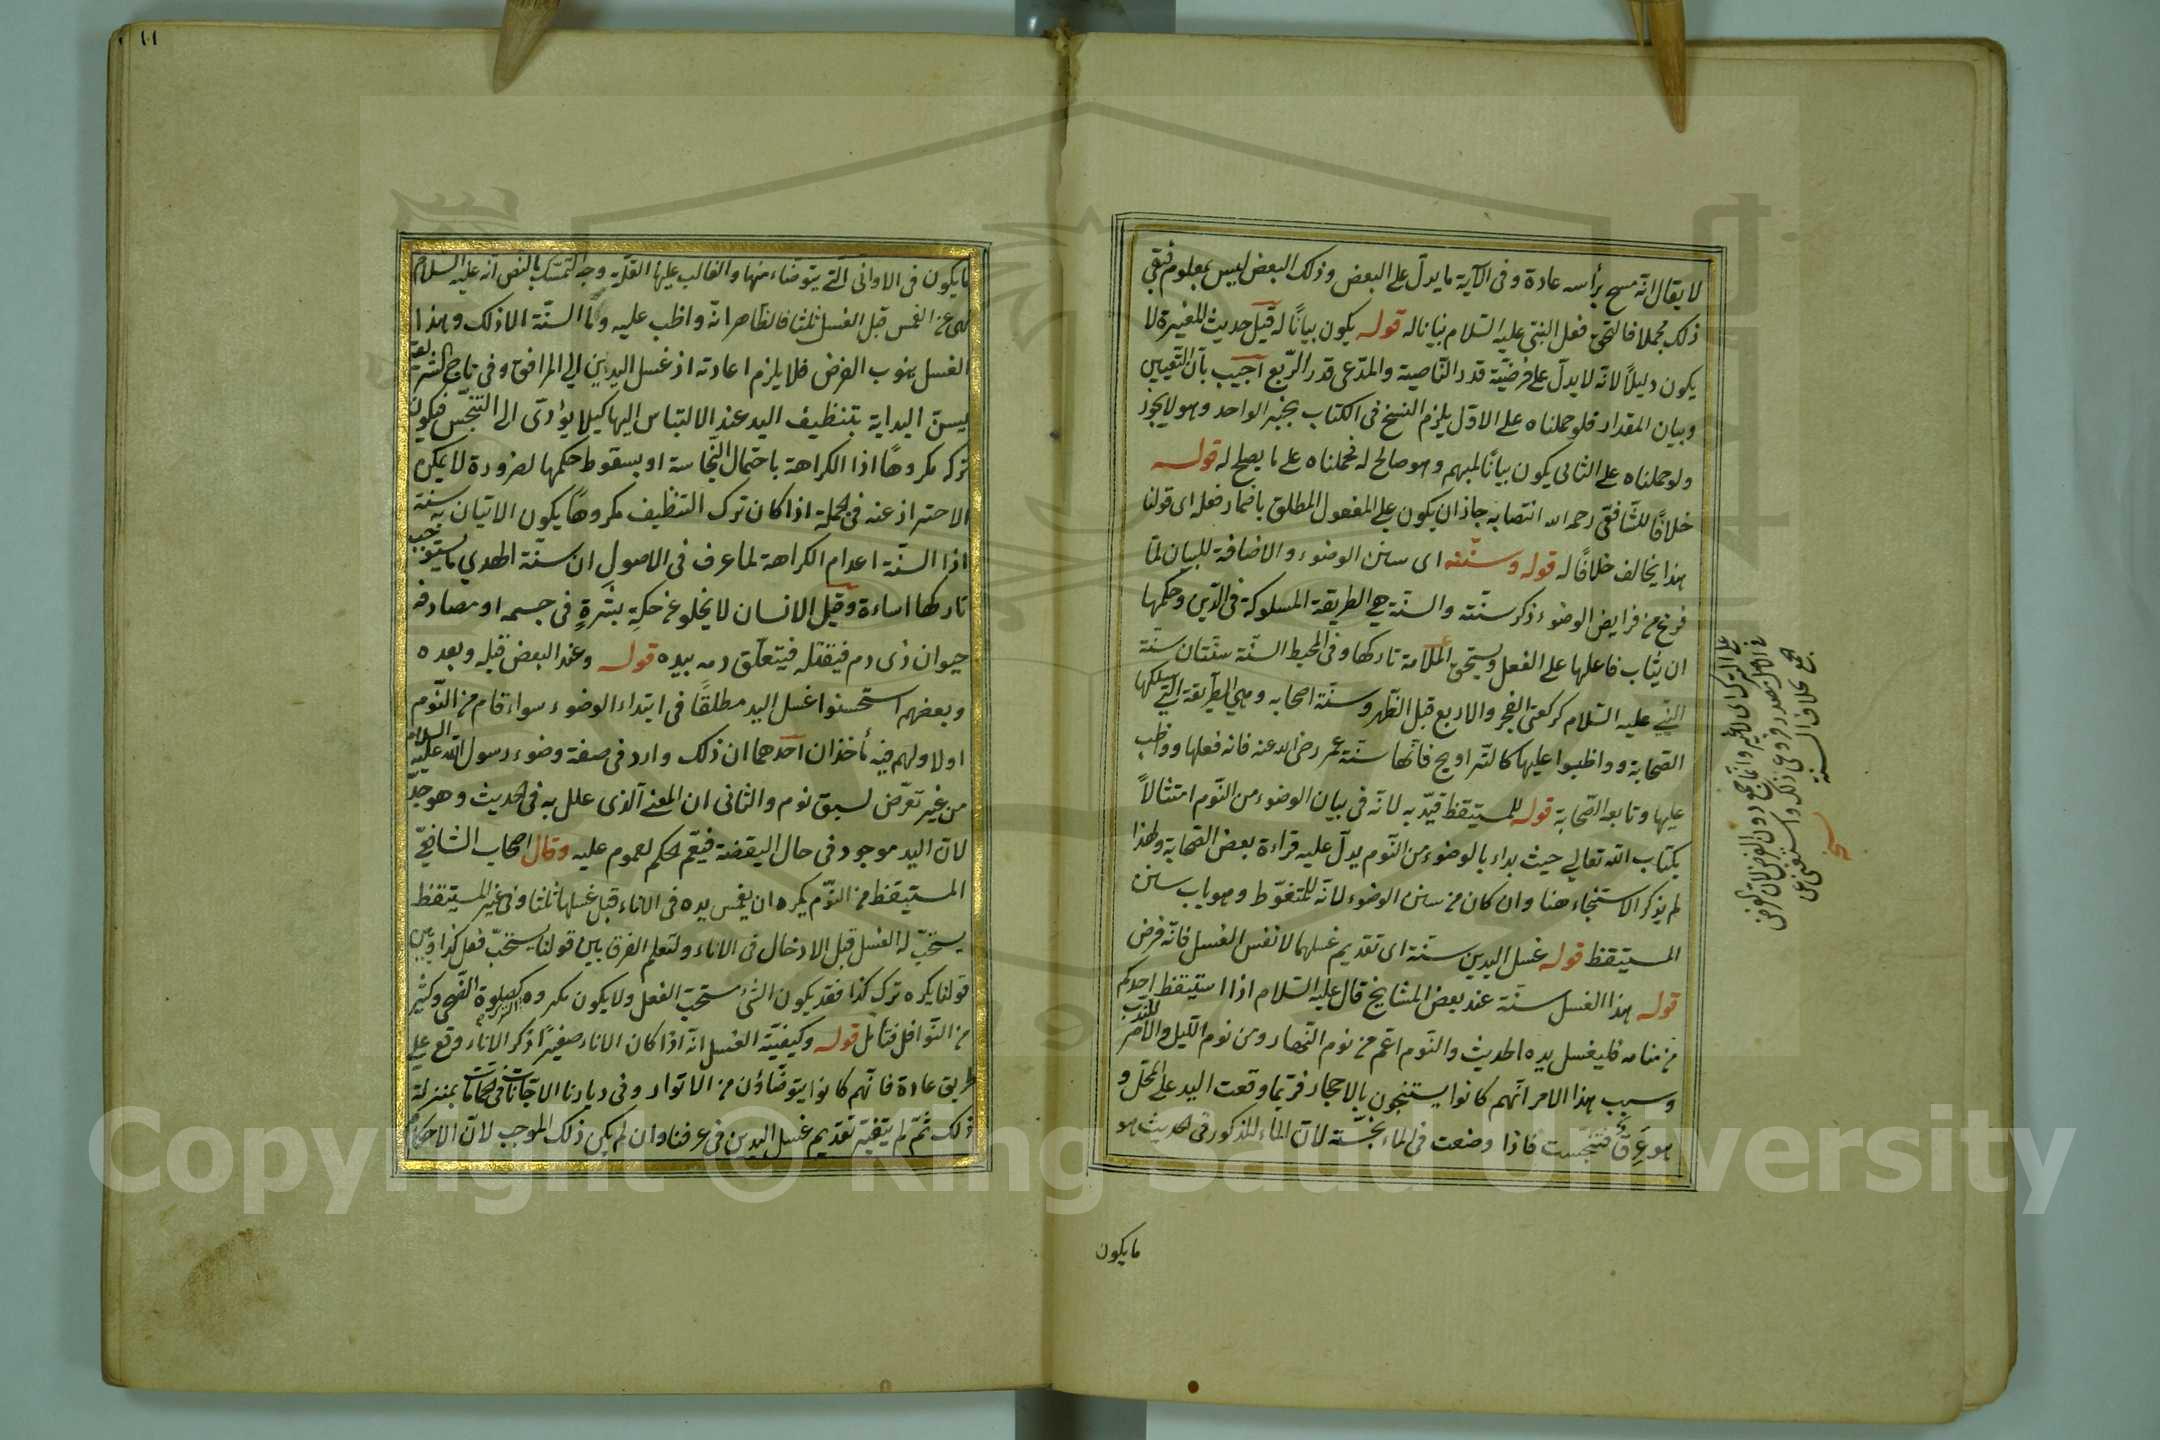 لا يقال انه مسح برأسه عادة وفى الآية ما يدلّ على البعض وذلك البعض ليس بمعلوم فبقى
ذلك مجملا فالتحق فعل النبىّ عليه السّلام بيانا له قوله يكون بيانًا له قيل حديث المغيرة لا
يكون دليلًا لانّه لا يدلّ على فرضيّة قدر النّاصية والمدّعى قدر الرّبع اجيب بأن التّعيين
وبيان المقدار فلو حملناه على الاوّل يلزم النسخ فى الكتاب بخبر الواحد وهو لا يجوز
ولو حملناه على الثانى يكون بيانًا لمبهم وهو صالح له فحملناه على ما يصلح له قوله
خلافًا للشّافعّى رحمه الله انتصابه جاز ان يكون على المفعول المطلق باضمار فعله اى قولنا
هذا يخالف خلافًا له قوله وسنّته اى سنن الوضوء والاضافة للبيان لمّا
فرغ من فرايض الوضوء ذكر سنّته والسنّة هى الطريقة المسلوكة فى الدّين وحكمها
ان يثاب فاعلها على الفعل ويستحق الملامة تاركها وفى المحيط السنّة سنّتان سنّة
النبّى عليه السّلام كركعتى الفجر والاربع قبل الظّهر وسنّة اصحابه وهى الطريقة التى سلكها
الصّحابة وواظبوا عليها كالتّراويح فانّها سنّة عمر رضى الله عنه فانه فعلها وواظب
عليها وتابعه الصّحابة قوله للمستيقظ قيّد به لانّه فى بيان الوضوء من النّوم امتثالاً
بكتاب الله تعالى حيث بداء بالوضوء من النّوم يدلّ عليه قراءة بعض الصّحابة ولهذا
لم يذكر الاستنجاء هنا وان كان من سنن الوضوء لانّه للتغوّط وهو باب سنن
المستيقظ قوله غسل اليدين سنّة اى تقديم غسلهما لا نفس الغسل فانّه فرض
قوله هذا الغسل سنّة عند بعض المشايخ قال عليه السّلام اذا استيقظ احدكم
من منامه فليغسل يده الحديث والنّوم اعمّ من نوم النّهار ومن نوم اللّيل والامر للندب
وسبب هذا الامر انّهم كانوا يستنجون بالاحجار فربّما وقعت اليد على المحلّ و
هو عَرِقٌ فتنجّست فاذا وضعت فى الماء نجّسته لانّ الماء المذكور فى الحديث هو
ما يكون
جمع بخلاف السنة
١١
ما يكون فى الاوانى الّتى يتوضّاء منها والغالب عليها القلّة وجه التمسّك بالنص انّه عليه السلام
نهى عن الغمس قبل الغسل ثلثا فالظاهر انّه واظب عليه وما السنّة الا ذلك وهذا
الغسل ينوب الفرض فلا يلزم اعادته اذ غسل اليدين الى المرافق وفى تاج الشريعة
يسنّ البداية بتنظيف اليد عند الالتباس اليها كيلا يؤدّى الى التنجّس فيكون
تركه مكروهًا اذا الكراهة باحتمال النّجاسة او بسقوط حكمها لضرورة لا يمكن
الاحتراز عنه فى الجملة اذا كان ترك التنظيف مكروهًا يكون الاتيان به سنة
اذا السنّة اعدام الكراهة لما عرف فى الاصول ان سنّة الهدى ما يستوجب
تاركها اساءة وقيل الانسان لا يخلو عن حكة بثرة فى جسمه او مصادفة
حيوان ذى دم فيقتله فيتعلّق دمه بيده قوله وعند البعض قبله وبعده
وبعضهم استحسنوا غسل اليد مطلقًا فى ابتداء الوضوء سواء قام من النّوم
اولا ولهم فيه مأخذان احدهما ان ذلك وارد فى صفة وضوء رسول الله عليه السلام
من غير تعرّض لسبق نوم والثانى ان المعنى الّذى علل به فى الحديث وهو جدّ
لانّ اليد موجود فى حال اليقضة فيعّم الحكم لعموم عليه وقال اصحاب الشافعىّ
المستيقظ من النّوم يكره ان يغمس يده فى الاناء قبل غسلها ثلثا وفى غير المستيقظ
يستحبّ له الغسل قبل الادخال فى الاناء ولتعلم الفرق بين قولنا يستحبّ فعل كذا وبين
قولنا يكره ترك كذا فقد يكون الشئ مستحبّ الفعل ولا يكون مكروه الترك كصلوة الضّحى وكثير
من النّوافل فتأمّل قوله وكيفيّة الغسل انّه اذا كان الاناء صغيرًا ذكر الاناء وقع على
طريق عادة فانّهم كانوا يتوضّاؤن من الاتوار وفى ديارنا الاجانات فى الحمامات بمنزلة
ذلك ثمّ لم يتغيّر تقديم غسل اليدين فى عرفنا وان لم يكن ذلك الموجب لانّ الاحكام
Copyright © King Saud University